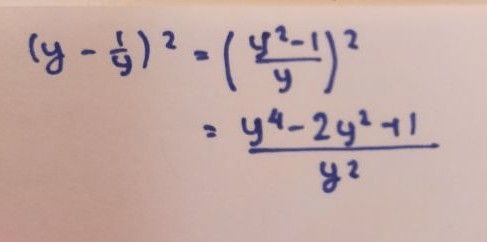 (y - 1/y)² = ((y²-1)/y)²
= (y⁴-2y²+1)/y²